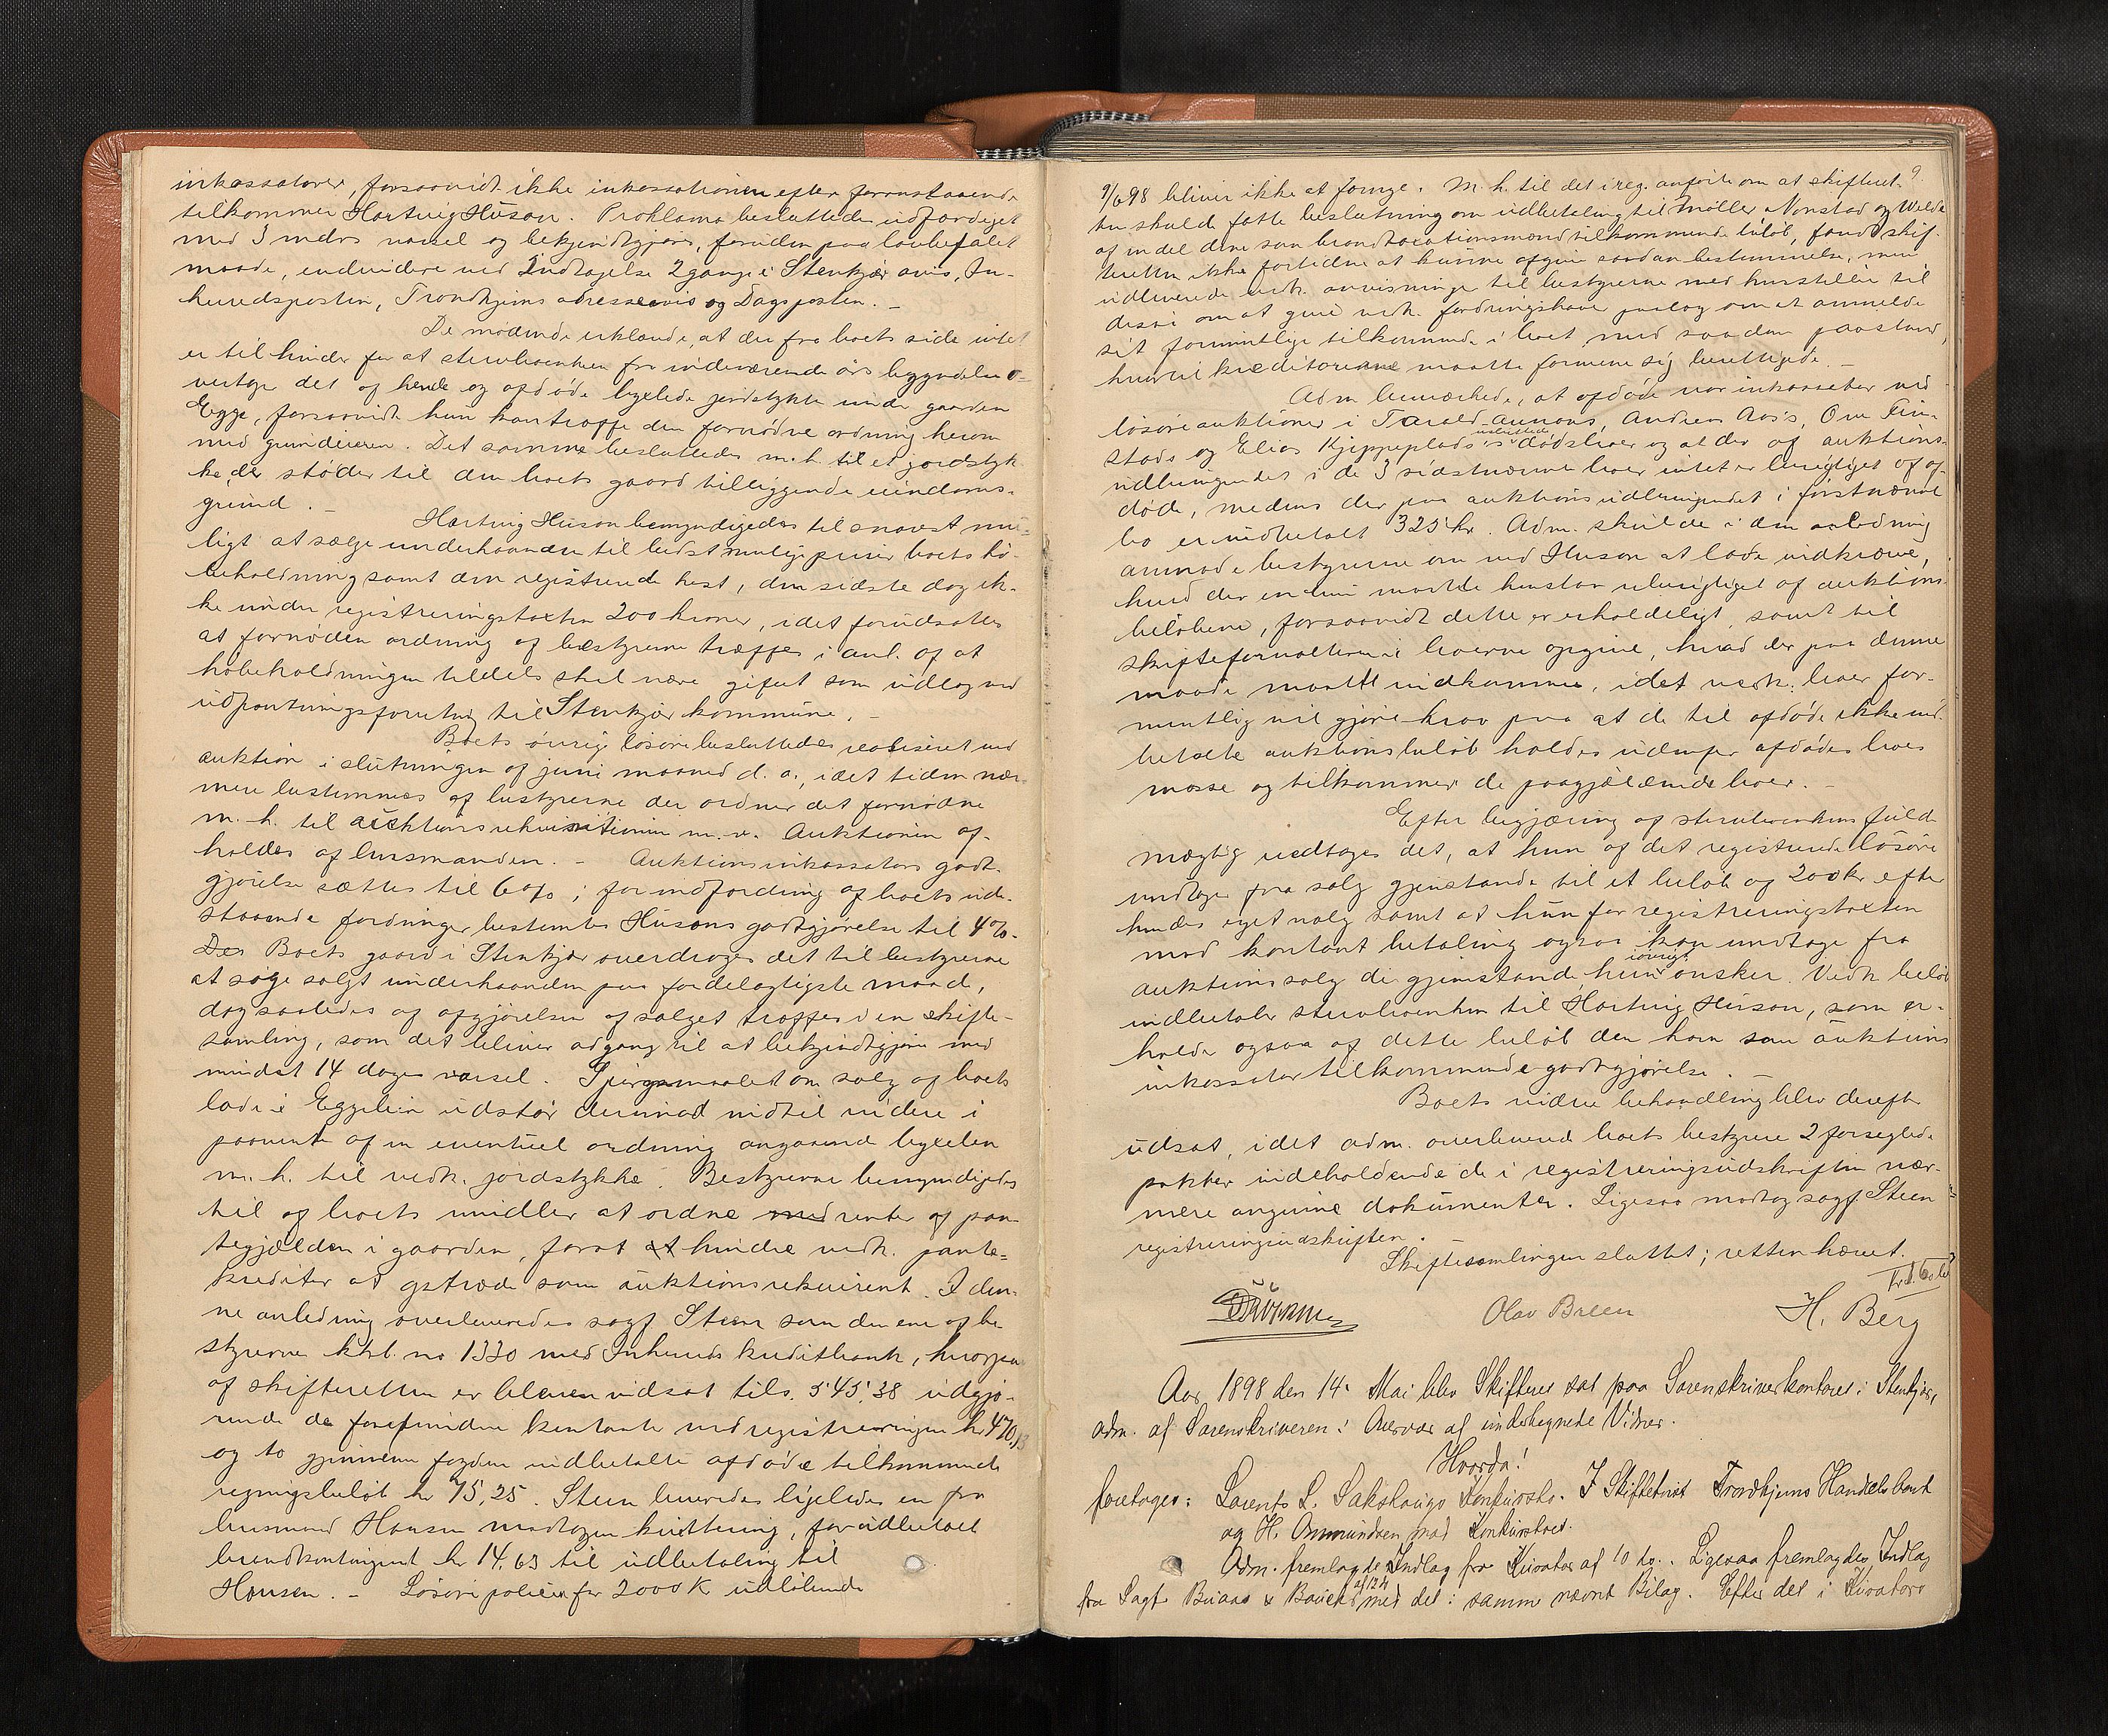 inkassatorer, forsaavidt ikke inkassationen efter foranstaaende
tilkommer Hartvig Huson. Proklama besluttedes udfærdiget
med 3 mdrs varsel og bekjendtgjøres, foruden paa lovbefalet
maade, endvidere ved Indtagelse 2 gange i Stenkjær avis, In-
herredsposten, Trondhjems adresseavis og Dagsposten. -
De mødende erklærede, at der fra boets side intet
er til hinder for at stervboenken fra indeværende års begyndelse o-
vertage det af hende og afdøde byxlede jordstykke under gaarden
Egge, forsaavidt hun kan træffe den fornødne ordning herom
med grundeieren. Det samme besluttedes m. h. til et jordstyk-
ke, der støder til den boets gaard tilliggende eiendoms-
grund. -
Hartvig Huson bemyndigedes til snarest mu-
ligt at sælge underhaanden til bedst mulige priser boets hø-
beholdning samt den registrerede hest, den sidste dog ik-
ke under registreringstaxten 200 kroner, idet forudsattes
at fornøden ordning af bestyrerne træffes i anl. af at
høbeholdningen tildels skal være gjort som udlæg ved
udpantningsforretning til Stenkjær kommune. -
Boets øvrige løsøre besluttedes realiseret ved
auktion i slutningen af juni maaned d. a., idet tiden nær-
mere bestemmes af bestyrerne der ordner det fornødne
m. h. til auktionsrekvisitionen m. v. Auktionen af-
holdes af lensmanden. - Auktionsinkassators godt-
gjørelse sættes til 6 %; for indfordring af boets ude-
staaende fordringer bestemtes Husons godtgjørelse til 4 %.
Des Boets gaard i Stenkjær overdroges det til bestyrerne
at søge solgt underhaanden paa fordelagtigste maade,
dog saaledes at afgjørelsen af salget træffes i en skifte-
samling, som det bliver adgang til at bekjendtgjøre med
mindst 14 dages varsel. Spørgsmaalet om salg af boets
lade i Eggelien udstår derimod indtil videre i
paavente af en eventuel ordning angaaende byxelen
m. h. til vedk. jordstykke. Bestyrerne bemyndigedes
til af boets midler at ordne med renter af pan-
tegjælden i gaarden, forat at hindre vedk. pante-
krediter at optræde som auktionsrekvirent. I den-
ne anledning overleveredes sagf Steen som den ene af be-
styrerne ktrl. no 1330 med Inherreds kreditbank, hvorpaa
af skifteretten er bleven indsat tils. 545,38 udgjø-
rende de forefundne kontante ved registreringen kr 470,13
og to gjennem fogden indbetalte afdøde tilkommende
regningsbeløb kr 75,25. Steen leveredes ligeledes en fra
lensmand Hansen modtagen kvittering, for udbetalt
brandkontingent kr 14,63 til udbetaling til
Hansen. - Løsørepolicen for 2000 K udløbende
9
9/6 98 bliver ikke at fornye. M. h. til det i reg. anførte om at skifteret-
ten skulde fatte beslutning om udbetaling til Møller, Nonstad og Welde
af en del dem som brandtaxationsmænd tilkommende beløb, fandt skif-
teretten ikke fortiden at kunne afgive saadan bestemmelse, men
udleverede vedk. anvisninger til bestyrerne med henstillen til
disse om at give vedk. fordringshavere paalæg om at anmelde
sit formentlige tilkommende i boet med saadan paastand,
hvortil kreditorerne maatte formene sig berettigede. -
Adm bemærkede, at afdøde var inkassator ved
løsøreauktioner i Tarald Aunaas, Andreas Aas's, Ove Fin-
stads og Elias Kjeppeplads's dødsboer og at der af auktions-
udbringendet i de 3 sidstnævnte boer intet er berigtiget af af-
døde, medens der paa auktionsudbringendet i førstnævnte
bo er indbetalt 325 kr. Adm. skulde i den anledning
anmode bestyrerne om ved Huson at lade indkræve,
hvad der endnu maatte henstaa uberigtiget af auktions-
beløbene, forsaavidt dette er erholdeligt, samt til
skifteforvalteren i boerne opgive, hvad der paa denne
maade maatte indkomme, idet vedk. boer for-
mentlig vil gjøre krav paa at de til afdøde ikke ind-
betalte auktionsbeløb holdes udenfor afdødes boes
masse og tilkommer de paagjældende boer. -
Efter begjæring af stervboenkens fuld-
mægtig vedtoges det, at hun af det registrerede løsøre
undtages fra salg gjenstande til et beløb af 200 kr efter
hendes eget valg samt at hun for registreringstaxten
mod kontant betaling ogsaa kan undtage fra
auktionssalg de gjenstande, hun iøvrigt ønsker. Vedk beløb
indbetaler stervboenken til Hartvig Huson, som er-
holder ogsaa af dette beløb den ham som auktions-
inkassator tilkommende godtgjørelse. -
Boets videre behandling blev derefter
udsat, idet adm. overleverede boets bestyrere 2 forseglede
pakker indeholdende de i registreringsudskriften nær-
mere angivne dokumenter. Ligesaa modtog sagf Steen
registreringsudskriften.
Skiftesamlingen sluttet; retten hævet.
Olav Breen
H. Berg
Aar 1898 den 14. Mai blev Skifteret sat paa Sorenskriverkontoret i Stenkjær,
adm. af Sorenskriveren i Overvær af undertegnede Vidner.
Hvorda!
foretoges: Lorents L. Sakshaugs Konkursbo. I Skiftetvist Trondhjems Handelsbank
og H. Ommundsen mod Konkursboet.
Adm. fremlagde Indlæg fra Kurator af 10 ds. Ligesaa fremlagdes Indlæg
fra Sagf. Buaas & Bauck af 12 ds med det i samme nævnt Bilag. Efter det i Kurators